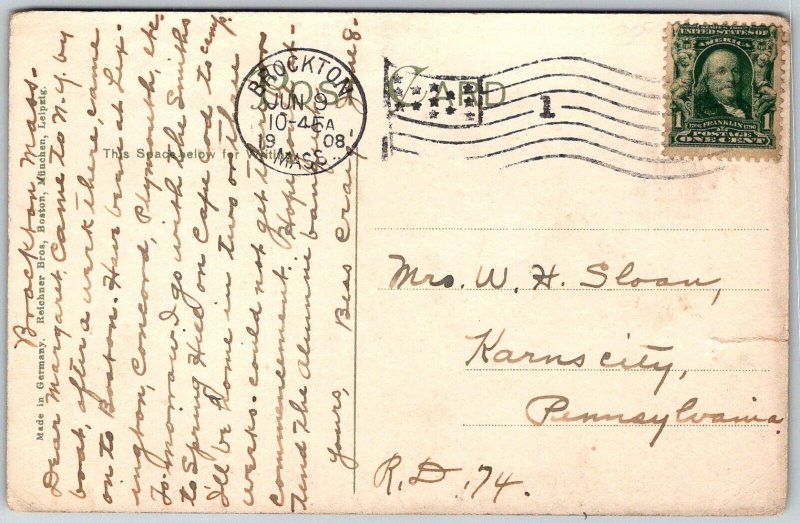 Brockton Mass.
Dear Margaret: Came to N.Y. by
boat, after a week there, came
on to Boston. Have been at Lex-
ington, Concord, Plymouth, etc.
To-morrow I go with the Smiths
to Spring Hill on Cape Cod to camp.
I'll be home in two or three
weeks - could not get there for
commencement. Hope to at-
tend the Alumni banquet
Yours, Bess Craig
Made in Germany. Reichner Bros, Boston, München, Leipzig.
POST CARD
This Space below for
BROCKTON
JUN 9
10-45A
1908
MASS.
1
UNITED STATES OF
AMERICA
1 FRANKLIN 1
POSTAGE
ONE CENT
Mrs. W. H. Sloan,
Karns city,
Pennsylvania
R.D. 74.